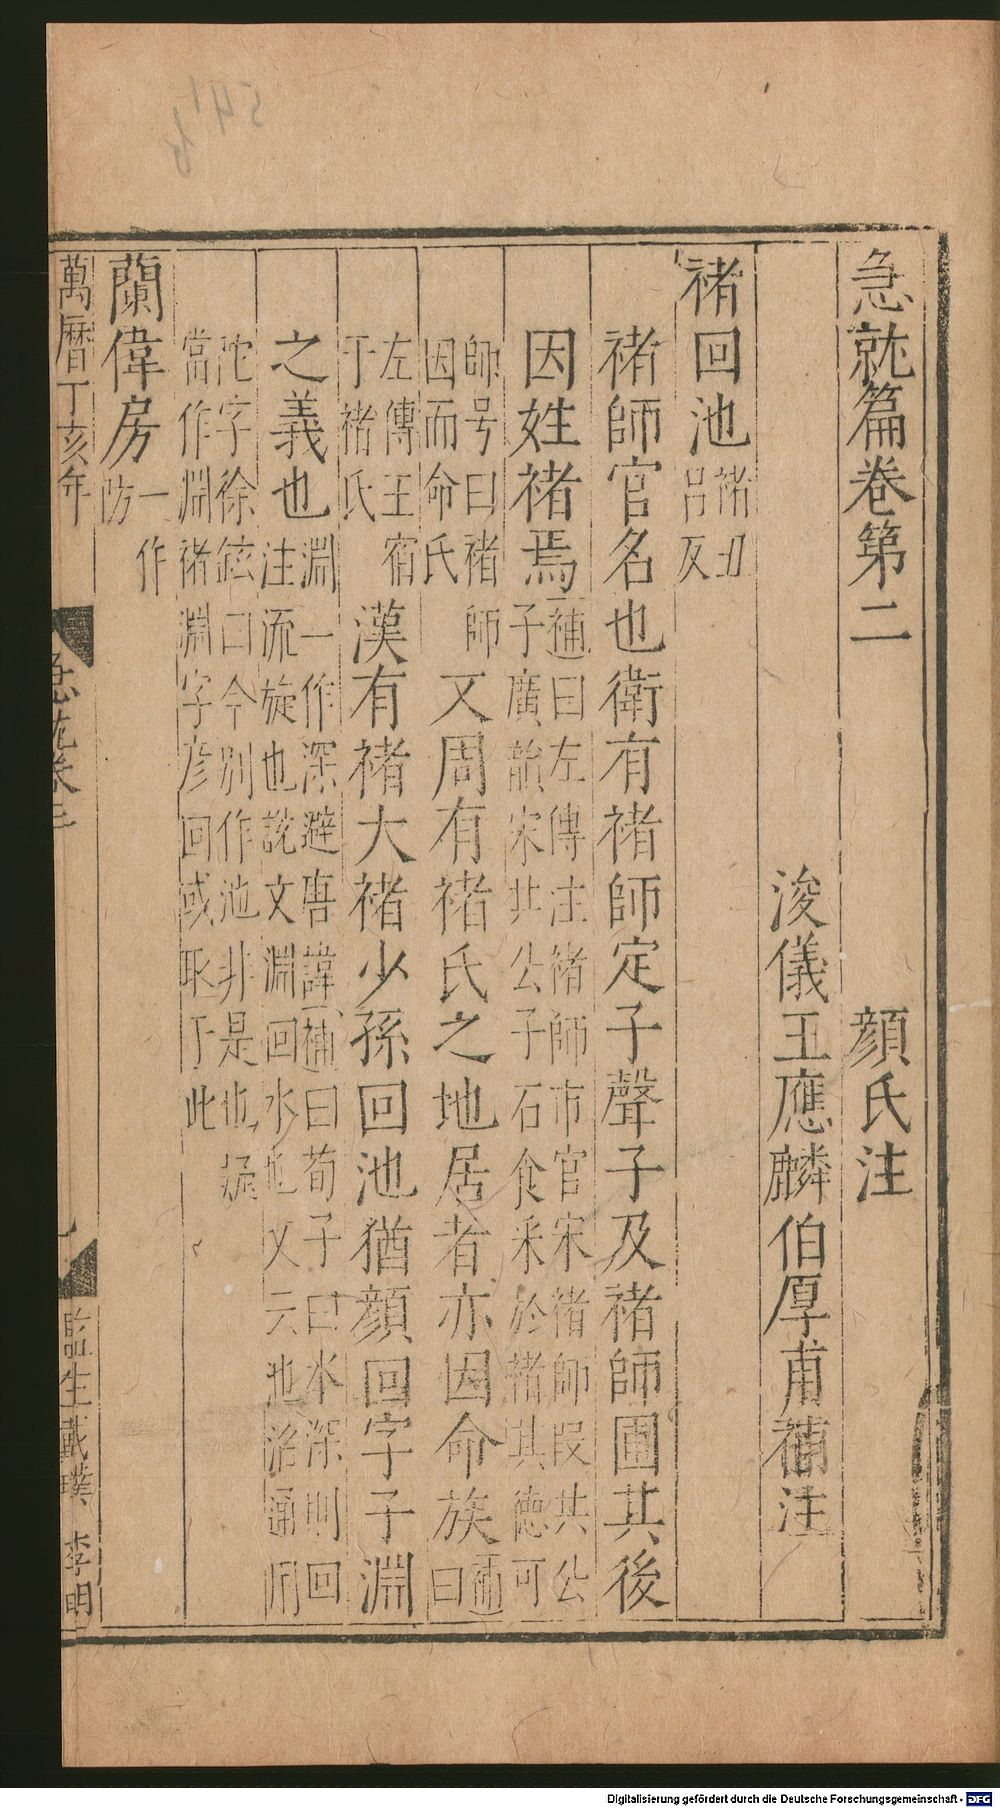 急就篇卷第二　顏氏注
浚儀王應麟伯厚甫補注
褚回池褚丑呂反
褚師官名也衛有褚師定子聲子及褚師圃其後
因姓褚焉補曰左傳注褚師市官宋褚師段共公子廣韻宋共公子石食釆於褚其德可
師号曰褚師因而命氏又周有褚氏之地居者亦因命族補曰
左傳王宿于褚氏漢有褚大褚少孫回池猶顏回字子淵
之義也淵一作深避唐諱補曰荀子曰水深則回注流旋也說文淵回水也又云池沼通用
沱字徐鉉曰今別作池非是也疑當作淵褚淵字彥回或取于此
蘭偉房一作防
萬曆丁亥年
急就卷二
一
監生戴璞 李明